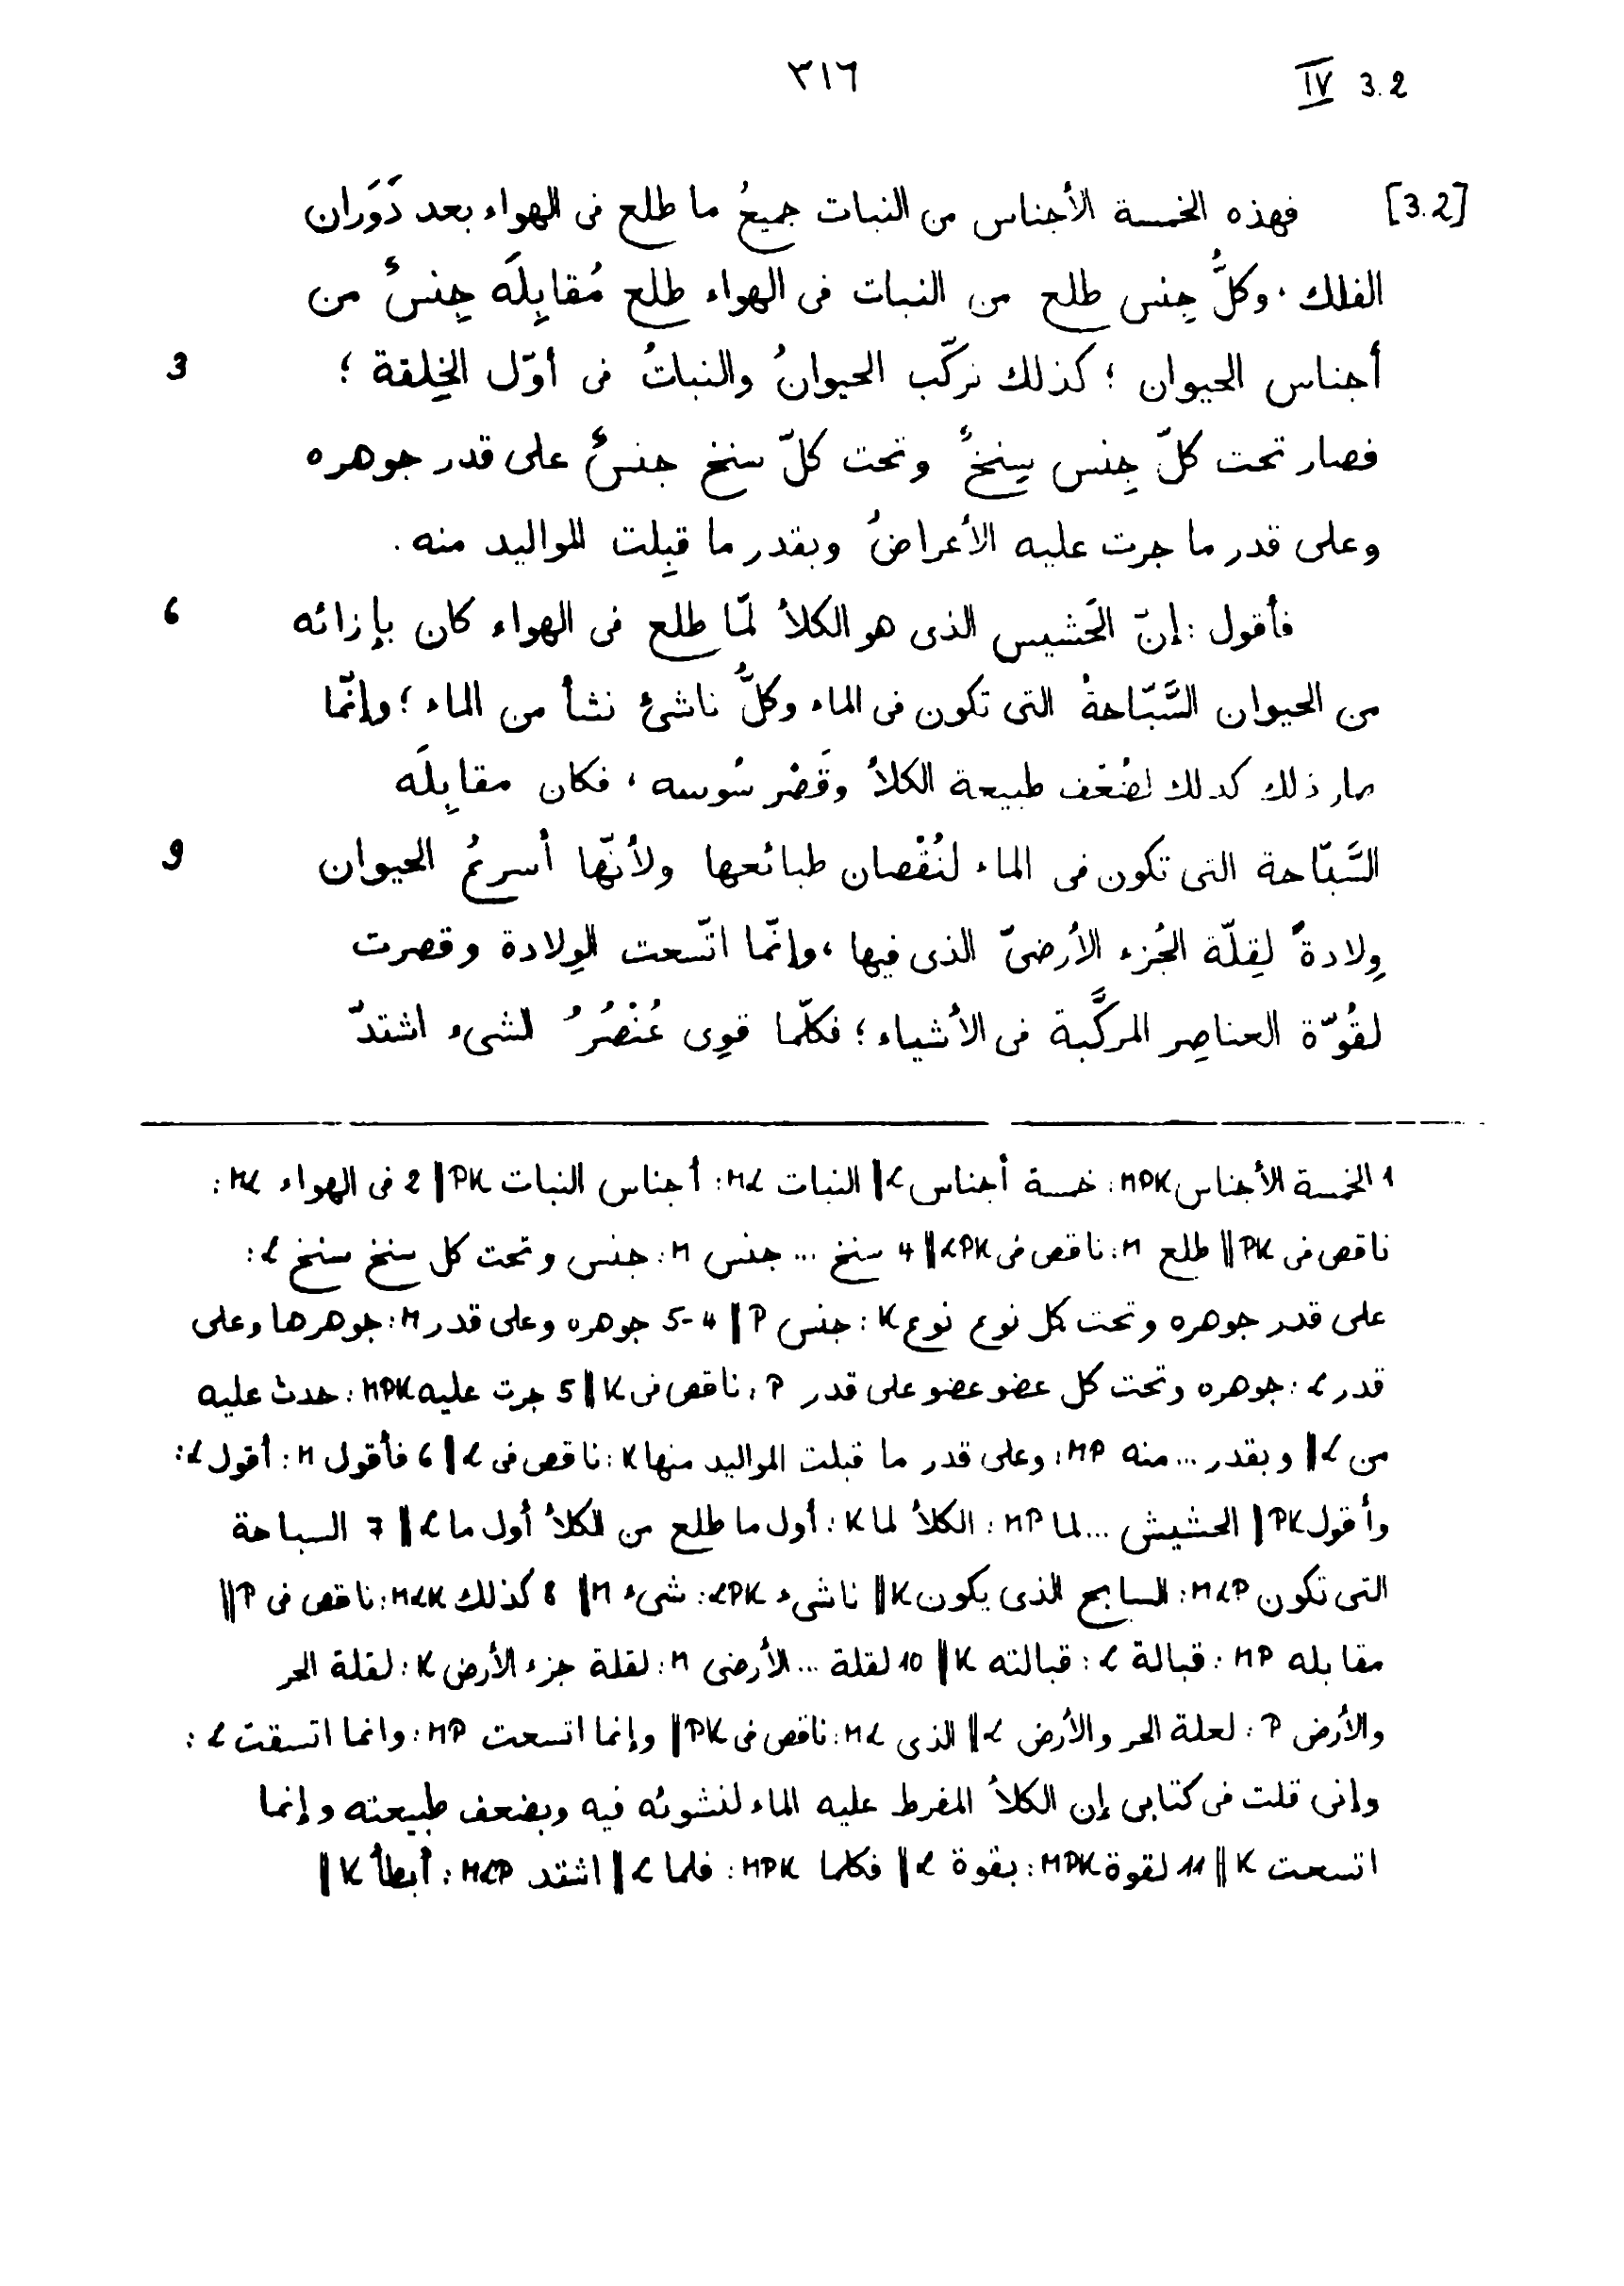 ٣١٦ IV 3.2
[3.2] فهذه الخمسة الأجناس من النبات جميعُ ما طلع فى الهواء بعد دَوَران
الفلك. وكلُّ جِنس طلع من النبات فى الهواء طلع مُقابِلَه جِنسٌ من
أجناس الحيوان؛ كذلك تركّب الحيوانُ والنباتُ فى أوّل الخِلقة؛ 3
فصار تحت كلّ جِنس سِنخٌ وتحت كلّ سنخ جنسٌ على قدر جوهره
وعلى قدر ما جرت عليه الأعراضُ وبقدر ما قبِلت المواليد منه.
فأقول: إنّ الحَشيس الذى هو الكلأ لمّا طلع فى الهواء كان بإزائه 6
من الحيوان السَّبّاحةُ التى تكون فى الماء وكلُّ ناشئ نشأ من الماء؛ وإنّما
صار ذلك كذلك لضُعْف طبيعة الكلأ وقَصْر سُوسه، فكان مقابِلَه
السَّبّاحة التى تكون فى الماء لنُقْصان طبائعها ولأنّها أسرعُ الحيوان 9
وِلادةً لقِلّة الجُزء الأرضىّ الذى فيها، وإنّما اتّسعت الوِلادة وقصرت
لقُوّة العناصِر المركَّبة فى الأشياء؛ فكلّما قوِى عُنْصُرُ الشىء اشتدّ
1 الخمسة الأجناس MPK: خمسة أجناس L || النبات ML: أجناس النبات PK || 2 فى الهواء ML:
ناقص فى PK || طلع M: ناقص فى LPK || 4 سنخ ... جنس M: جنس وتحت كل سنخ سنخ L:
على قدر جوهره وتحت كل نوع نوع K: جنس P || 4-5 جوهره وعلى قدر M: جوهرها وعلى
قدر L: جوهره وتحت كل عضو عضو على قدر P: ناقص فى K || 5 جرت عليه MPK: حدث عليه
من L || وبقدر ... منه MP: وعلى قدر ما قبلت المواليد منها K: ناقص فى L || 6 فأقول M: أقول L:
وأقول PK || الحشيش ... لما MP: الكلأ لما K: أول ما طلع من الكلأ أول ما L || 7 السباحة
التى تكون MLP: السابح الذى يكون K || ناشىء LPK: شىء M || 8 كذلك MLK: ناقص فى P ||
مقابله MP: قبالة L: قبالته K || 10 لقلة ... الأرضى M: لقلة جزء الأرض K: لقلة الحر
والأرض P: لعلة الحر والأرض L || الذى ML: ناقص فى PK || وإنما اتسعت MP: وانما اتسقت L:
وإنى قلت فى كتابى إن الكلأ المفرط عليه الماء لنشوئه فيه وبضعف طبيعته وإنما
اتسعت K || 11 لقوة MPK: بقوة L || فكلما MPK: فلما L || اشتد MLP: أبطأ K ||